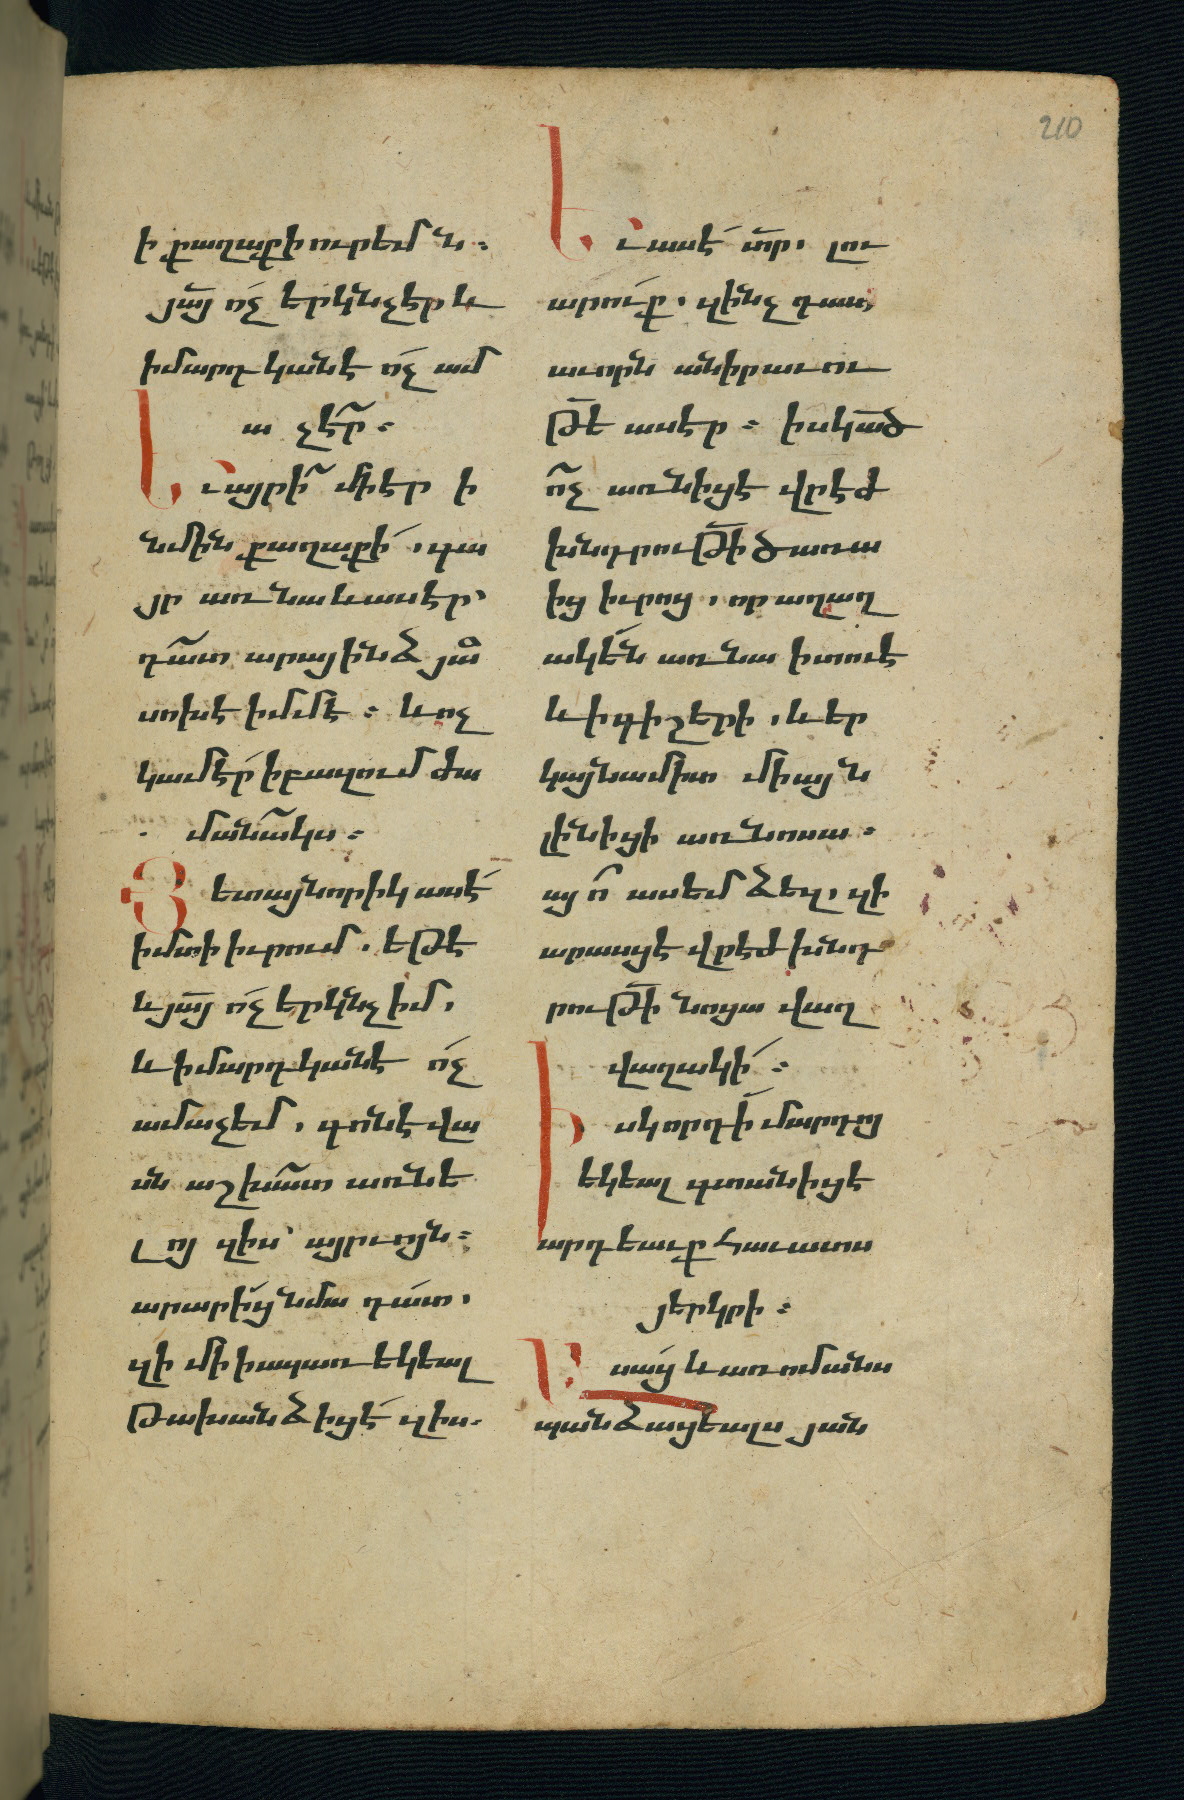 210
ի քաղաքի ուրեմն։
յայ ոչ երկնչէր և
ի մարդկանէ ոչ ամ
ա չէր։
Եւ այրի մի էր ի
նմին քաղաքի, գա
յր առ նա և ասէր՝
դատ արա յինձ յո
սոխէ իմմէ։ և ոչ
կամէր ի բազում ժա
մանակս։
Յետ այնորիկ ասէ
ի մտի իւրում. եթէ
և յայ ոչ երկնչիմ,
և ի մարդկանէ ոչ
ամաչեմ, գոնէ վա
սն աշխատ առնե
լոյ զիս՝ այրւոյն։
արարից նմա դատ,
զի մի իսպառ եկեալ
թախանձիցէ զիս.
Եւ ասէ տր, լու
արուք, զինչ դատ
աւորն անիրաւու
թե ասէր։ իսկ ած
ոչ առնիցէ վրէժ
խնդրութի ծառա
ից իւրոց, որ աղաղ
ակեն առ նա ի տուէ
և ի գիշերի, և եր
կայնամիտ միայն
լինիցի առ նոսա։
այո ասեմ ձեզ, զի
արասցէ վրէժ խնդ
րութի նոցա վաղ
վաղակի։
Իսկ որդի մարդոյ
եկեալ գտանիցէ
արդեաւք հաւատս
յերկրի։
Ասաց և առ ոմանս
պանձացեալս յան